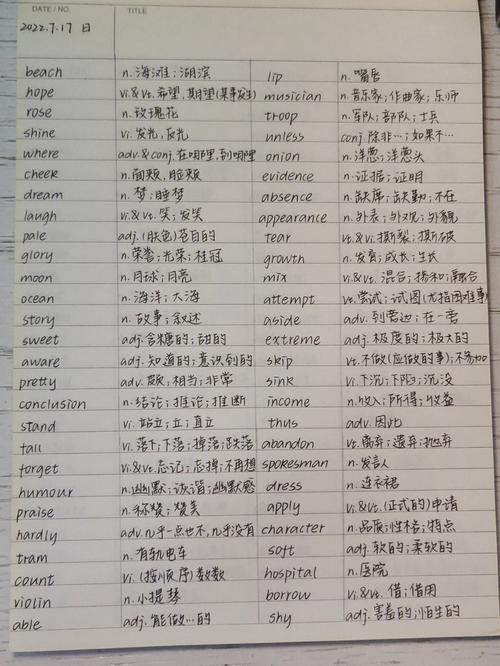 DATE / NO. TITLE
2022.7.17 日
beach n. 海滩；湖滨 lip n. 嘴唇
hope vi.&vt. 希望，期望(某事发生) musician n. 音乐家；作曲家；乐师
rose n. 玫瑰花 troop n. 军队；部队；士兵
shine vi. 发光，反光 unless conj. 除非…；如果不…
where adv.&conj. 在哪里，到哪里 onion n. 洋葱；洋葱头
cheek n. 面颊，脸颊 evidence n. 证据；证明
dream n. 梦；睡梦 absence n. 缺席；缺勤；不在
laugh vi.&vt. 笑；发笑 appearance n. 外表；外观；外貌
pale adj. (肤色)苍白的 tear vt.&vi. 撕裂；撕破
glory n. 荣誉；光荣；桂冠 growth n. 发育；成长；生长
moon n. 月球；月亮 mix vi.&vt. 混合；掺和；融合
ocean n. 海洋；大海 attempt vt. 尝试；试图(尤指困难事)
story n. 故事；叙述 aside adv. 到旁边；在一旁
sweet adj. 含糖的；甜的 extreme adj. 极度的；极大的
aware adj. 知道的；意识到的 skip vt. 不做(应做的事)；不参加
pretty adv. 颇，相当；非常 sink vi. 下沉；下陷；沉没
conclusion n. 结论；推论；推断 income n. 收入；所得；收益
stand vi. 站立；立；直立 thus adv. 因此
fall vi. 落下；下落；掉落；跌落 abandon vt. 离弃；遗弃；抛弃
forget vi.&vt. 忘记；忘掉；不再想 spokesman n. 发言人
humour n. 幽默；诙谐；幽默感 dress n. 连衣裙
praise n. 称赞；赞美 apply vi.&vt. (正式的)申请
hardly adv. 几乎一点也不，几乎没有 character n. 品质；性格；特点
tram n. 有轨电车 soft adj. 软的；柔软的
count vi. (按顺序)数数 hospital n. 医院
violin n. 小提琴 borrow vi.&vt. 借；借用
able adj. 能做…的 shy adj. 害羞的；怕生的